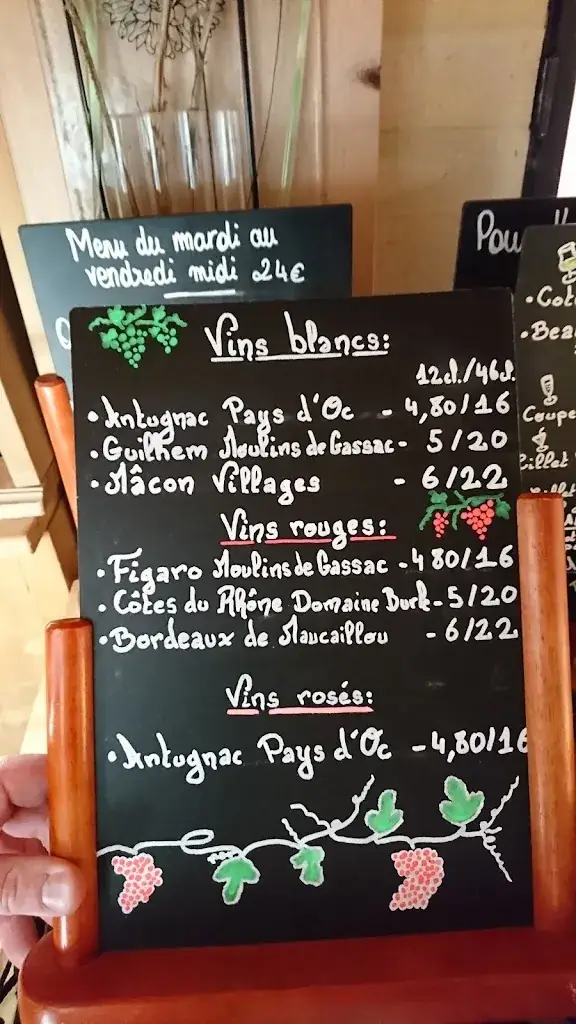 Menu du mardi au
vendredi midi 24€
Vins blancs:
12cl./46cl.
• Antugnac Pays d'Oc - 4,80/16
• Guilhem Moulins de Gassac - 5/20
• Mâcon Villages - 6/22
Vins rouges:
• Figaro Moulins de Gassac - 4 80/16
• Côtes du Rhône Domaine - 5/20
• Bordeaux de Maucaillou - 6/22
Vins rosés:
• Antugnac Pays d'Oc - 4,80/16
Pou
• Cot
• Bea
Coupe